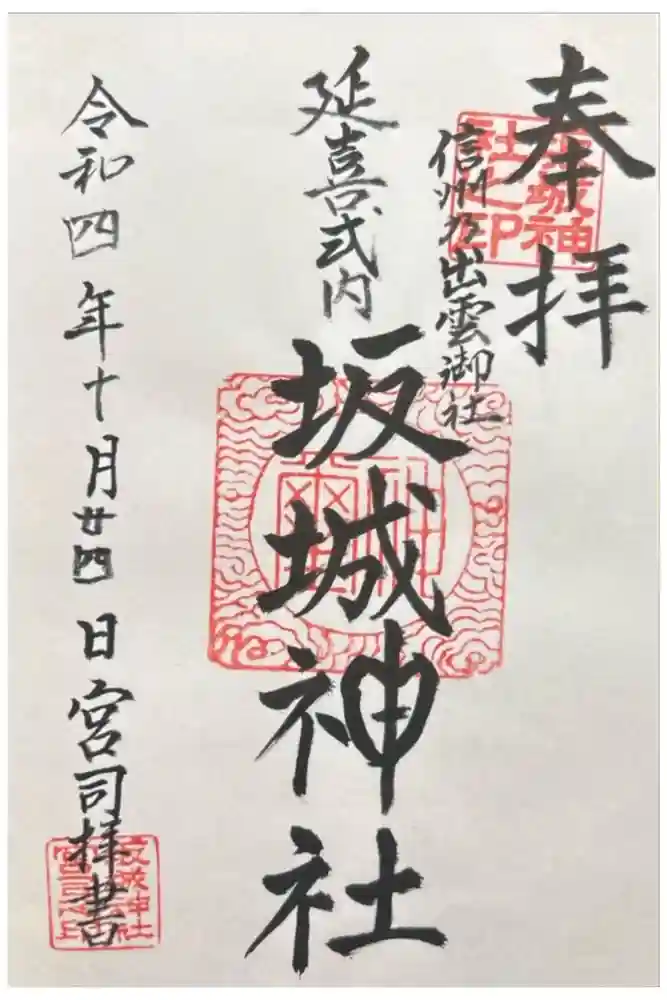 奉拝
信州乃出雲御社
延喜式内
坂城神社
令和四年十月廿四日宮司拝書
坂城神
社之印
坂城神社
宮司之印